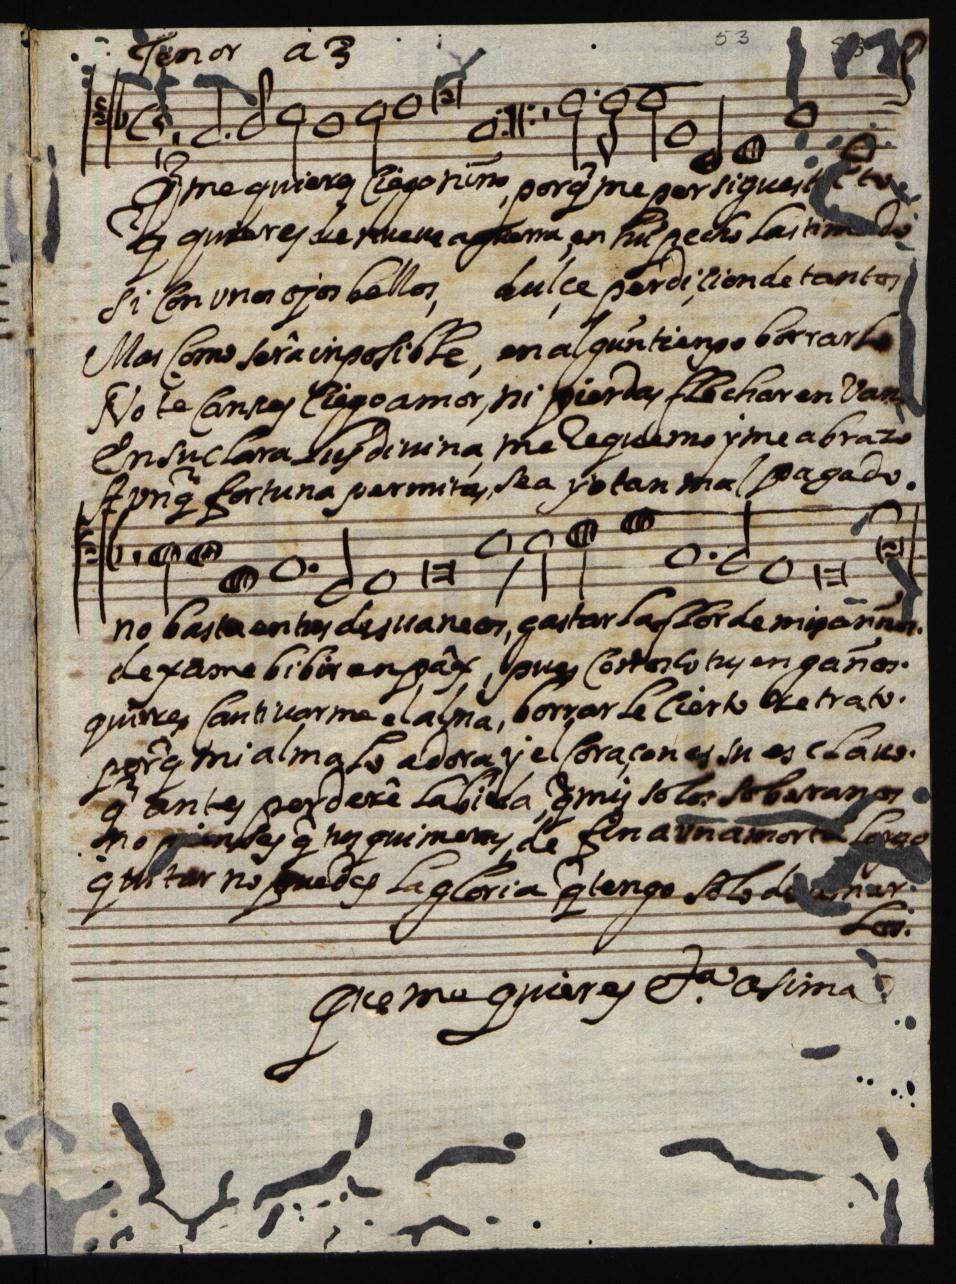 Tenor a 3
53
q̃ me quieres ciego niño, porq̃ me persigues
q̃ quieres de nueua guerra, en tu pecho lastimado
si con vnos ojos bellos, dulçe perdiçion de tantos
Mas como serâ inposible, en algun tienpo borrarlo
No te canses ciego amor, ni pierdas flechar en Van
En su clara lus diuina, me requemo y me abrazo
Avnq̃ fortuna permita, sea yo tan mal pagado.
no basta en tus desuaneos, gastar la flor de mis años.
dexame bibir en pâx, pues conosco tus engaños.
quieres cautiuarme el alma, borrar le cierto Retrato.
porq̃ mi alma lo adora, y el coraçon es su esclauo.
q̃ antes perderê la bida, q̃ mis soles soberanos
no pienses q̃ tus quimeras, de fin a vn amor tã largo
quitar no puedes la gloria q̃ tengo solo de amar
los.
Que me quieres Ja. asima